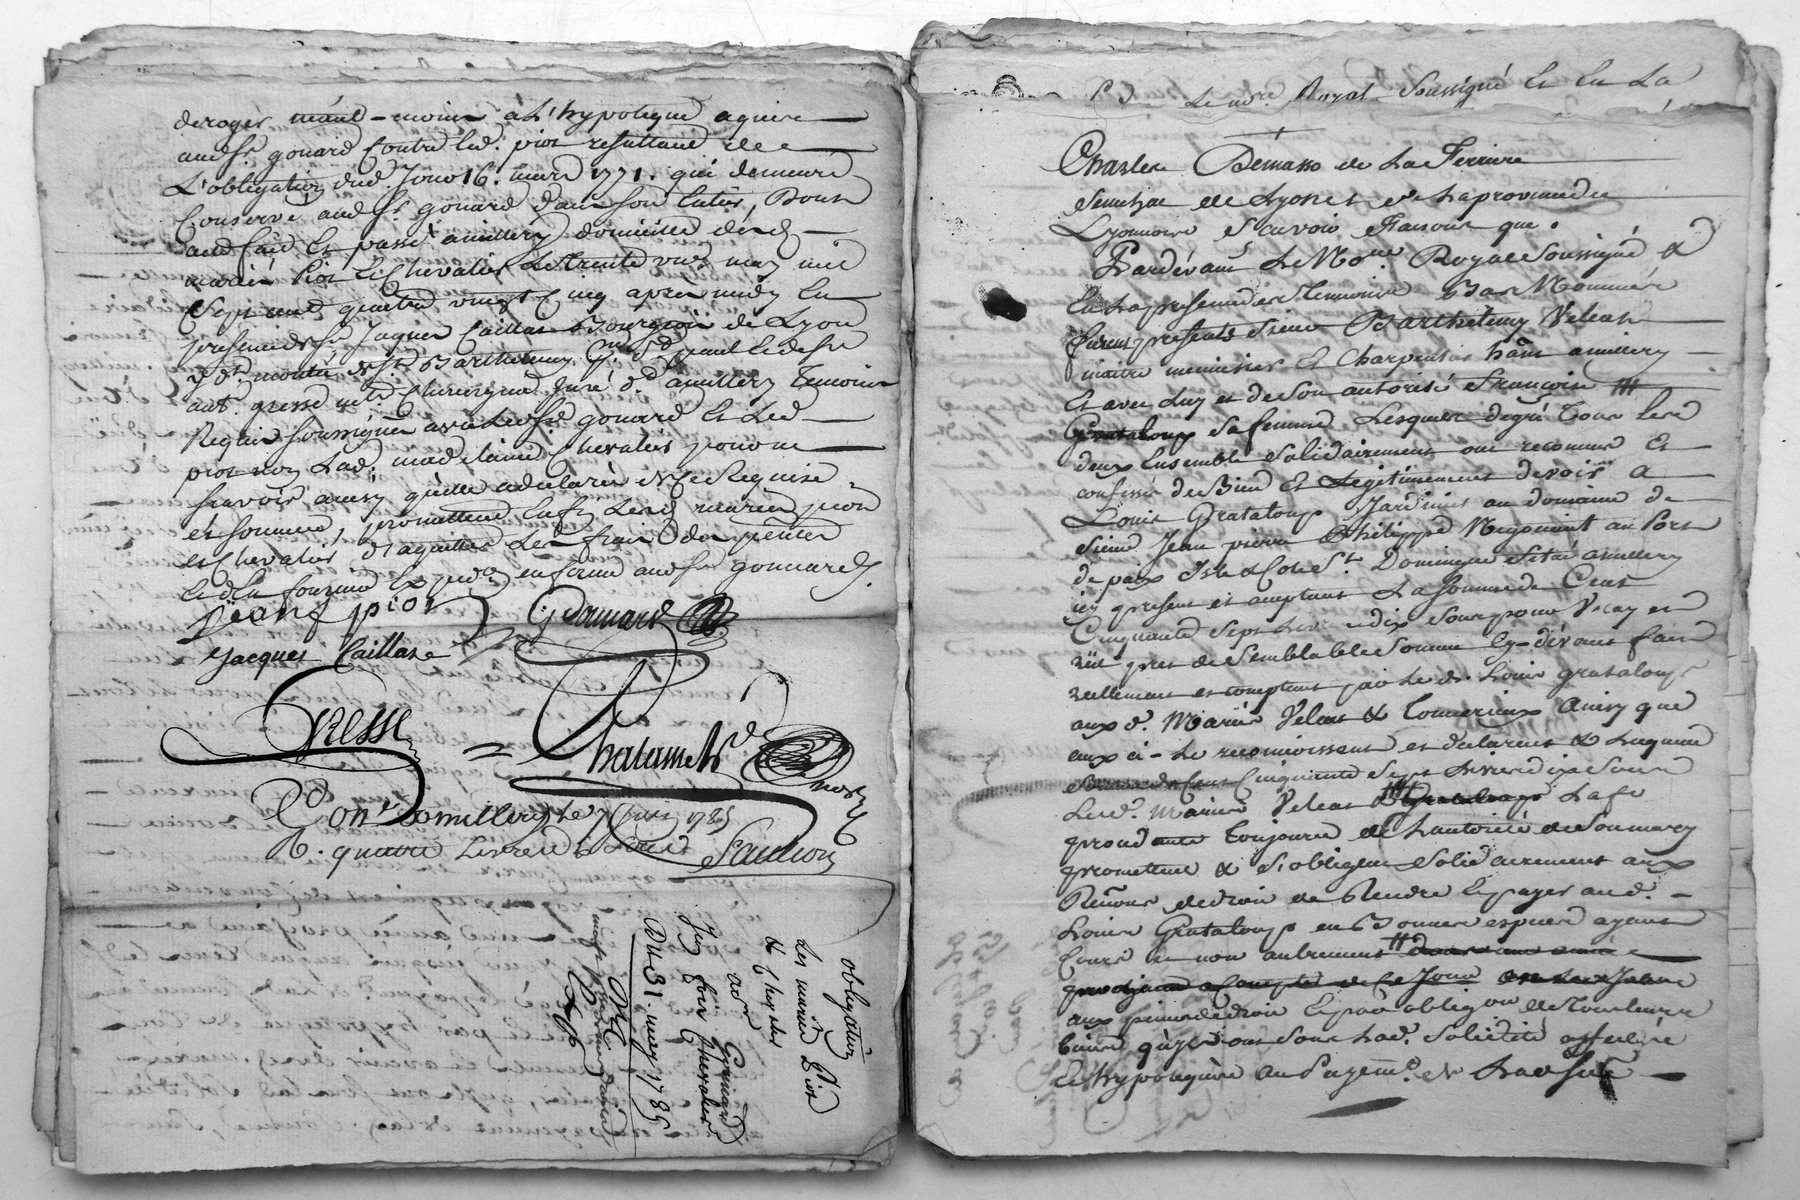 deroger néant-moins à L'hypoteque aquise
audsr. gonard Contre led. piot resultant de
L'obligation dud. Jour 16. mars 1771. qui demeure
Conservé aud Sr. gonard dans son Entier, Dont
acte fait Et passé a millery domicile desd.
mariés Piot Et Chevalier Le trente un may mil
Sept cent quatre vingt Cinq après midy En
presence de Sr. Jaques Caillat Bourgeois de Lyon
y dt. montée de St. Barthelemy psse. St. paul Et de Sr
ant. gresse mtre Chirurgien Juré dt. a millery Temoins
Requis soussignés avec Led Sr. gonard Et Led
piot non Lad. madelaine Chevalier pour ne
sçavoir ainsy qu'elle a declaré de ce Requise
et sommée, promettant Enfin Lesd mariés piot
et Chevalier d'aquitter Les frais des presentes
Et d'en fournir Expedon. en forme aud sr gonnard.
jean piot Gonnard
Jacques Caillat
Gresse = Chalamel
Con. a millery le 7 juin 1785
R. quatre Livres Saulnion
obligation
Les mariés Piot
& Chevalier
a Sr Gonnard
Du 31. may 1785
Le no. Royal Soussigné Et En La
Charles Démasso de La Ferriere
Senechal de Lyon Et de La province de
Lyonnois Sçavoir Faisons que.
Pardevant Le Nore Royal Soussigné &
En La presence des Temoins Bas Nommés
furent presents Sieur Barthelemy Veleat
maitre menuisier Et Charpentier hant. a millery
Et avec Luy et de Son autorité Françoise
Grataloup Sa femme Lesquels degré Tous Les
deux Ensemble Solidairement ont reconnu Et
confessé de Bien Et Legitimement devoir a
Louis Grataloup Jardinier au domaine de
Sieur Jean pierre Philippe Negociant au Port
de paix Isle & Cote St. Domingue Situé a millery
icy present et aceptant La Somme de Cent
Cinquante Sept Livres dix Sous pour Vray et
réel pret de Semblable Somme Cy-devant fait
reellement et comptant par Le d. Louis grataloup
aux d. Mariés Veleat & Ainsy que
eux ci-Le reconnoissent et declarent & Laquelle
Somme de Cent Cinquante Sept Livres dix Sous
Lesd. Mariés Veleat & Grataloup La fe
procedante Toujours de L'autorité de Son mary
promettent & S'obligent Solidairement aux
Renons. de droit de Rendre Et payer aud.
Louis Grataloup en Bonnes especes ayant
Cours et non autrement
prochaine a Compter de Ce Jour
aux peines de droit Et par obligon de Tous Leurs
biens qu'ils ont Sous Lad. Solidité affecté
Et hypotequé au Payemt. de Lad. Sme